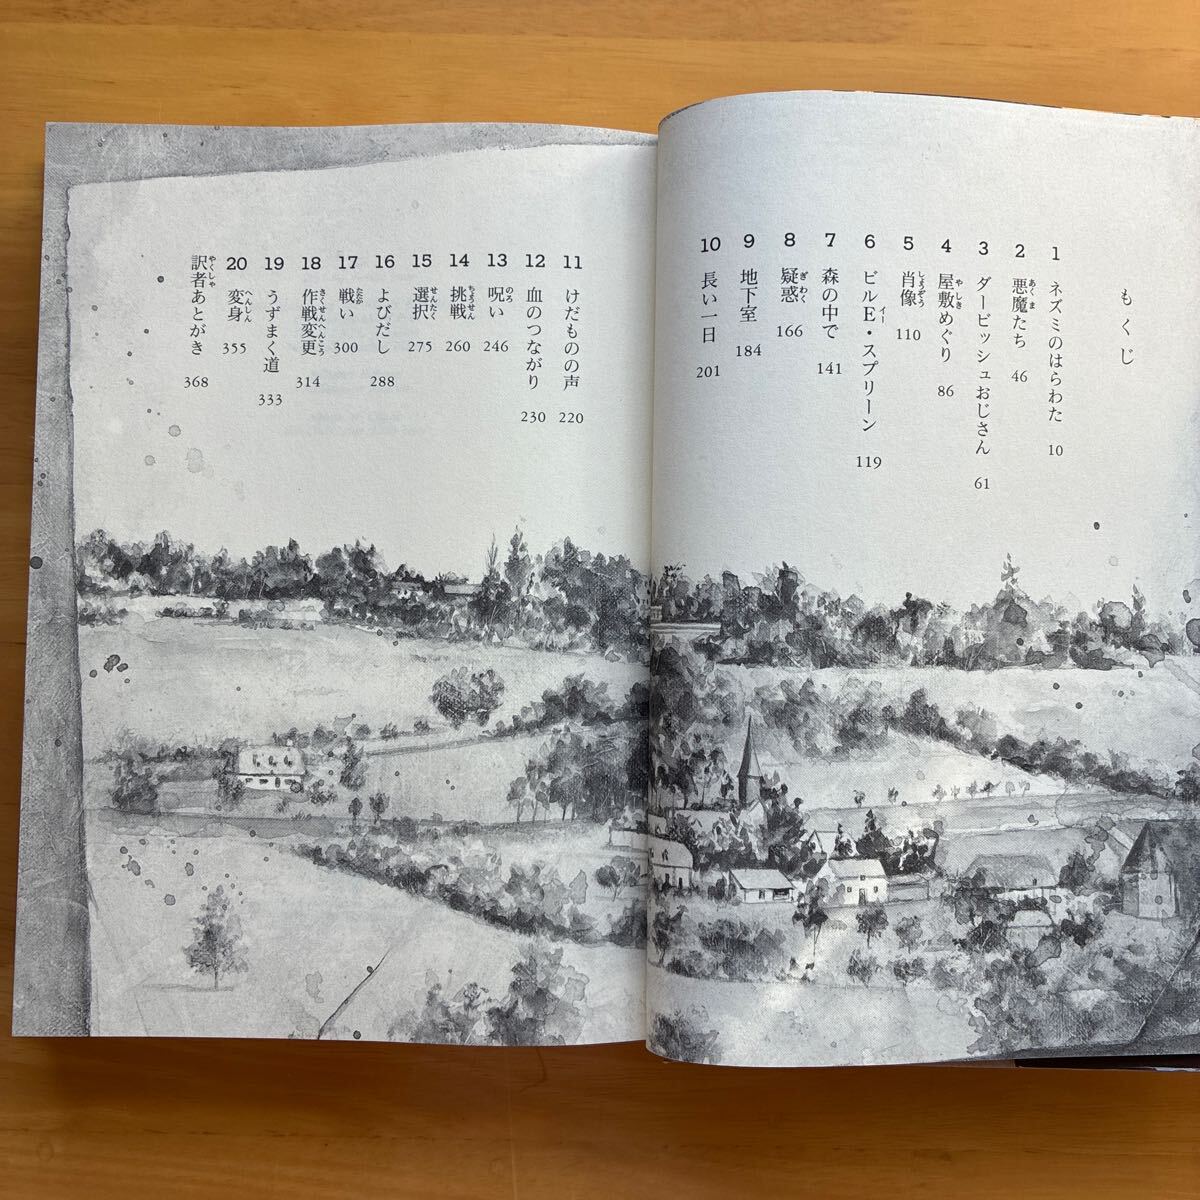 もくじ
1 ネズミのはらわた 10
2 悪魔たち 46
3 ダービッシュおじさん 61
4 屋敷めぐり 86
5 肖像 110
6 ビルE・スプリーン 119
7 森の中で 141
8 疑惑 166
9 地下室 184
10 長い一日 201
11 けだものの声 220
12 血のつながり 230
13 呪い 246
14 挑戦 260
15 選択 275
16 よびだし 288
17 戦い 300
18 作戦変更 314
19 うずまく道 333
20 変身 355
訳者あとがき 368